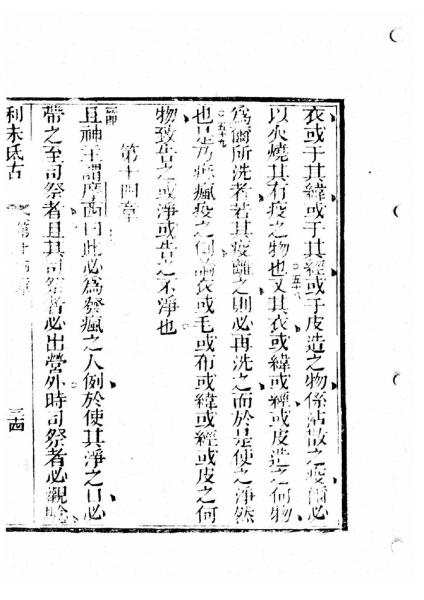 衣或于其緯或于其經或于皮造之物係沾散之疫爾必
以火燒其有疫之物也五十八又其衣或緯或經或皮造之何物
為爾所洗者若其疫離之則必再洗之而於是使之淨然
五十九也是乃疾瘋疫之例論衣或毛或布或緯或經或皮之何
物致告之或淨或告之不淨也
第十四章
一節且神主謂摩西曰二此必為發瘋之人例於使其淨之日必
帶之至司祭者三且其司祭者必出營外時司祭者必觀驗
利未氏古
第十四章
三四